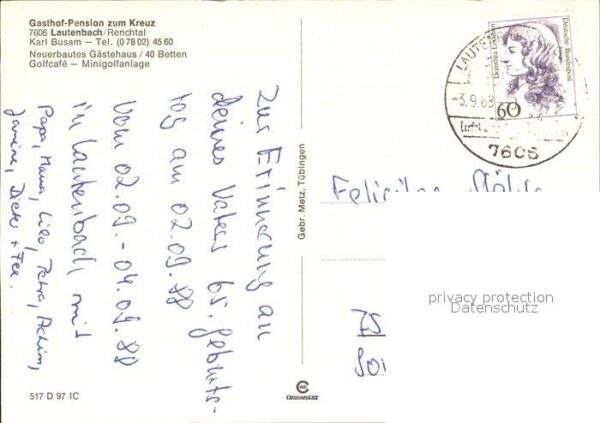 Gasthof-Pension zum Kreuz
7606 Lautenbach/Renchtal
Karl Busam — Tel. (0 78 02) 45 60
Neuerbautes Gästehaus / 40 Betten
Golfcafé — Minigolfanlage
Zur Erinnerung an
deines Vaters 65. Geburts-
tag am 02.09.88
vom 02.09. - 04.09.88
in Lautenbach mit
Papa, Mama, Lilo, Petra, Achim,
Janine, Dieter + Fee.
Gebr. Metz, Tübingen
Deutsche Bundespost
60
LAUTE
-3.9.
7606
privacy protection
Datenschutz
517 D 97 IC
CHROMOLUX